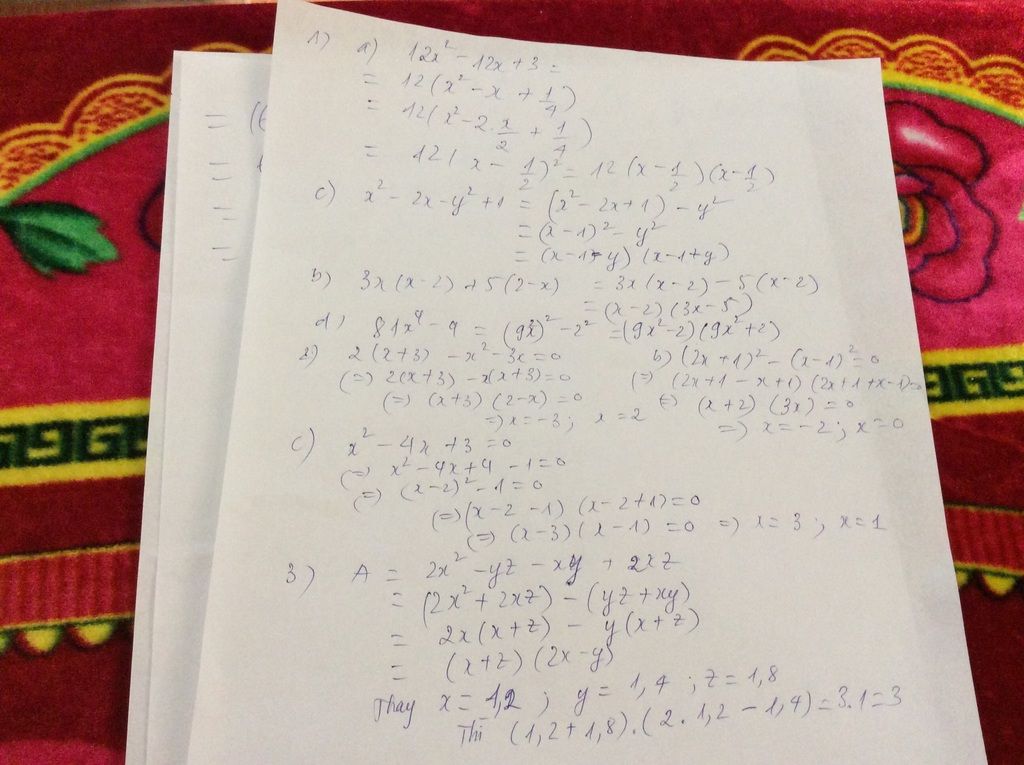 1) a) 12x² - 12x + 3 =
= 12(x² - x + 1/4)
= 12(x² - 2.x/2 + 1/4)
= 12(x - 1/2)² = 12(x - 1/2)(x - 1/2)
c) x² - 2x - y² + 1 = (x² - 2x + 1) - y²
= (x - 1)² - y²
= (x - 1 - y)(x - 1 + y)
b) 3x(x - 2) + 5(2 - x) = 3x(x - 2) - 5(x - 2)
= (x - 2)(3x - 5)
d) 81x⁴ - 4 = (9x²)² - 2² = (9x² - 2)(9x² + 2)
2) 2(x + 3) - x² - 3x = 0 b) (2x + 1)² - (x - 1)² = 0
(=) 2(x + 3) - x(x + 3) = 0 (=) (2x + 1 - x + 1)(2x + 1 + x - 1) = 0
(=) (x + 3)(2 - x) = 0 (=) (x + 2)(3x) = 0
=) x = -3; x = 2 =) x = -2; x = 0
c) x² - 4x + 3 = 0
(=) x² - 4x + 4 - 1 = 0
(=) (x - 2)² - 1 = 0
(=) (x - 2 - 1)(x - 2 + 1) = 0
(=) (x - 3)(x - 1) = 0 =) x = 3; x = 1
3) A = 2x² - yz - xy + 2xz
= (2x² + 2xz) - (yz + xy)
= 2x(x + z) - y(x + z)
= (x + z)(2x - y)
Thay x = 1,2; y = 1,4; z = 1,8
Thì (1,2 + 1,8).(2.1,2 - 1,4) = 3.1 = 3